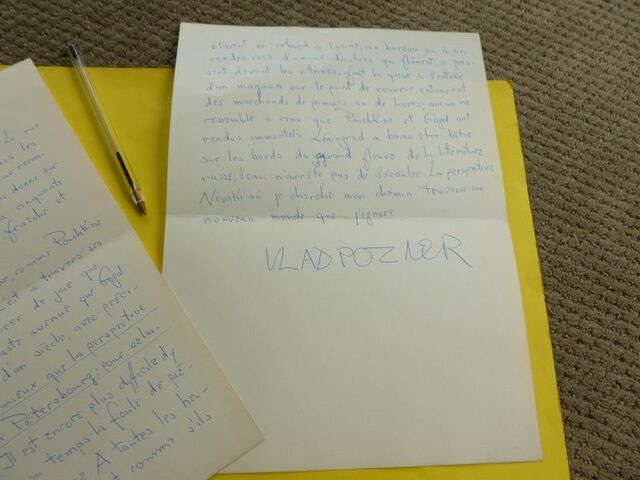 La rue
les
donne sur
cinquante
fraîche et
comme Pouchkine
à travers ses
de joie que
avenue que Gogol
d'un siècle, avec préci-
mieux que la perspective
Pétersbourg: pour celui-
Il est encore plus difficile d'y
temps la foule de pié-
A toutes les heu-
comme s'ils
étaient en retard à l'usine, au bureau ou à un
rendez-vous d'amour, d'autres qui flânent se pres-
sent devant les vitrines, font la queue à l'entrée
d'un magasin sur le point de rouvrir, entourent
des marchands de pommes ou de livres; aucun ne
ressemble à ceux que Pouchkine et Gogol ont
rendus immortels. Léningrad a beau être bâtie
sur les bords du grand fleuve de la littérature
russe, l'eau n'arrête pas de s'écouler. La perspective
Nevski où je cherche mon chemin traverse un
nouveau monde que j'ignore
VLAD POZNER